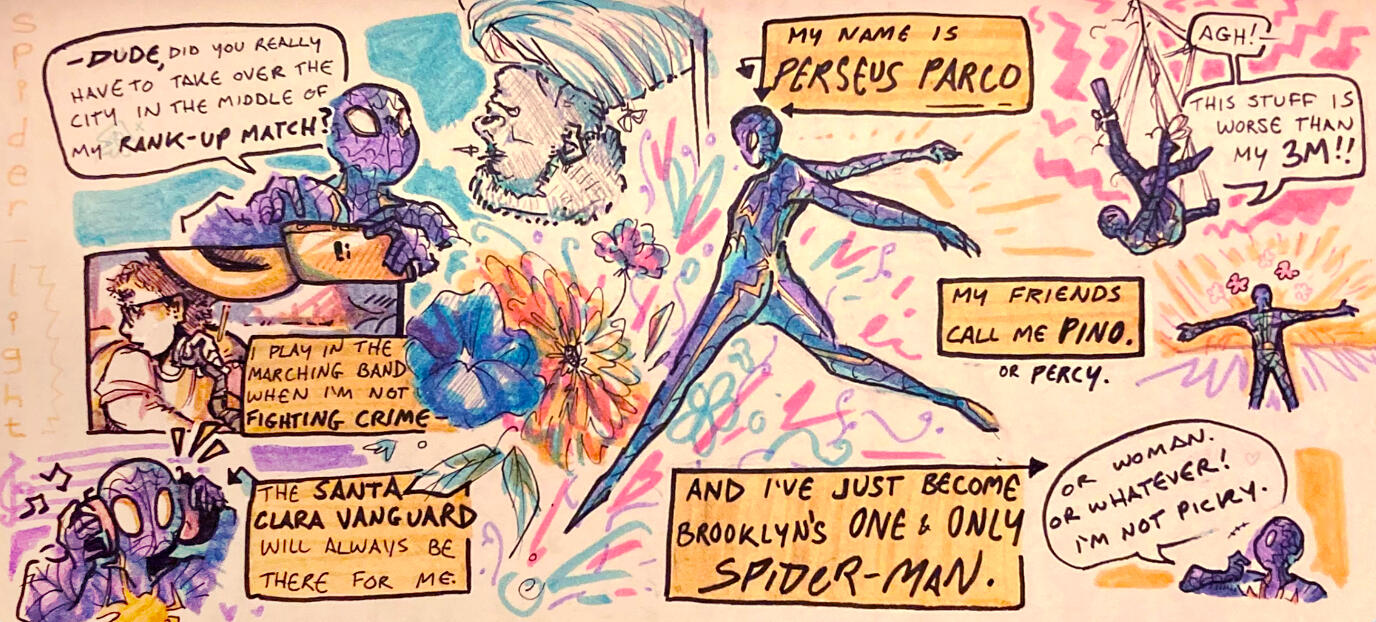 spider_light
-DUDE, DID YOU REALLY
HAVE TO TAKE OVER THE
CITY IN THE MIDDLE OF
MY RANK-UP MATCH?
I PLAY IN THE
MARCHING BAND
WHEN I'M NOT
FIGHTING CRIME-
THE SANTA
CLARA VANGUARD
WILL ALWAYS BE
THERE FOR ME.
MY NAME IS
PERSEUS PARCO
AGH!-
THIS STUFF IS
WORSE THAN
MY 3M!!
MY FRIENDS
CALL ME PINO.
OR PERCY.
AND I'VE JUST BECOME
BROOKLYN'S ONE & ONLY
SPIDER-MAN.
OR WOMAN.
OR WHATEVER!
I'M NOT PICKY.